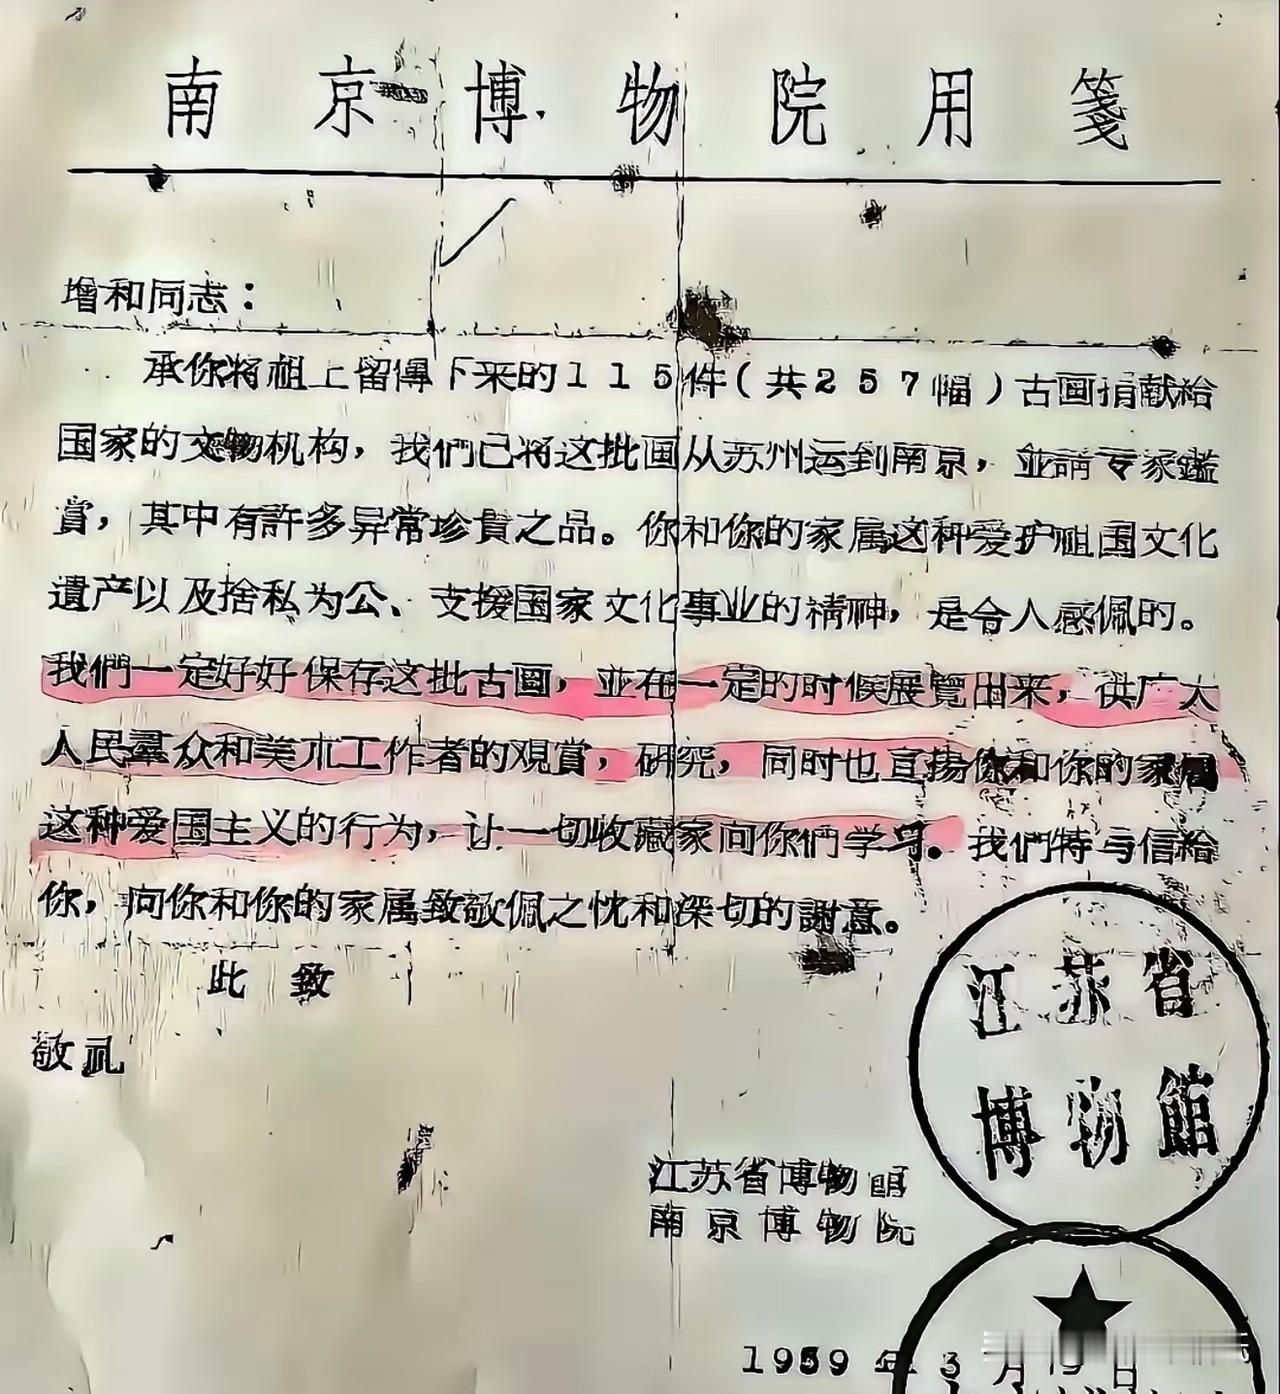 南京博物院用箋
增和同志：
承你将祖上留傳下来的115件(共257幅)古画捐献给
国家的文物机构，我們已将这批画从苏州运到南京，並請专家鑑
賞，其中有許多异常珍貴之品。你和你的家属这种爱护祖国文化
遺产以及捨私为公、支援国家文化事业的精神，是令人感佩的。
我們一定好好保存这批古画，並在一定的时候展覽出来，供广大
人民羣众和美朮工作者的观賞，研究，同时也宣扬你和你的家属
这种爱国主义的行为，让一切收藏家向你們学习。我們特写信给
你，向你和你的家属致敬佩之忱和深切的謝意。
此致
敬礼
江苏省
博物館
江苏省博物館
南京博物院
1959年3月19日